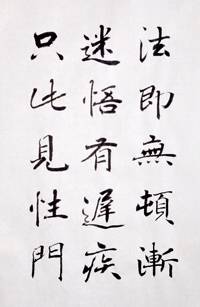 法即無頓漸
迷悟有遲疾
只此見性門